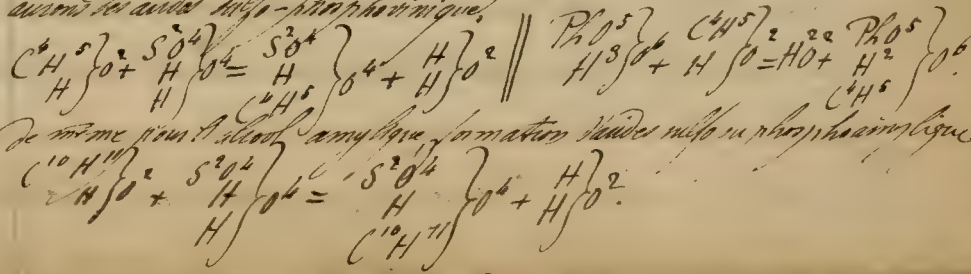 aurons les acides sulfo-phosphovinique.
C⁴H⁵ H } O² + S²O⁴ H H } O⁴ = S²O⁴ H C⁴H⁵ } O⁴ + H H } O² || PhO⁵ H³ } O⁶ + C⁴H⁵ H } O² = H²O² + PhO⁵ H² C⁴H⁵ } O⁶.
De même pour l'alcool amylique, formation d'acides sulfo ou phosphoamylique
C¹⁰H¹¹ H } O² + S²O⁴ H H } O⁴ = S²O⁴ H C¹⁰H¹¹ } O⁴ + H H } O².